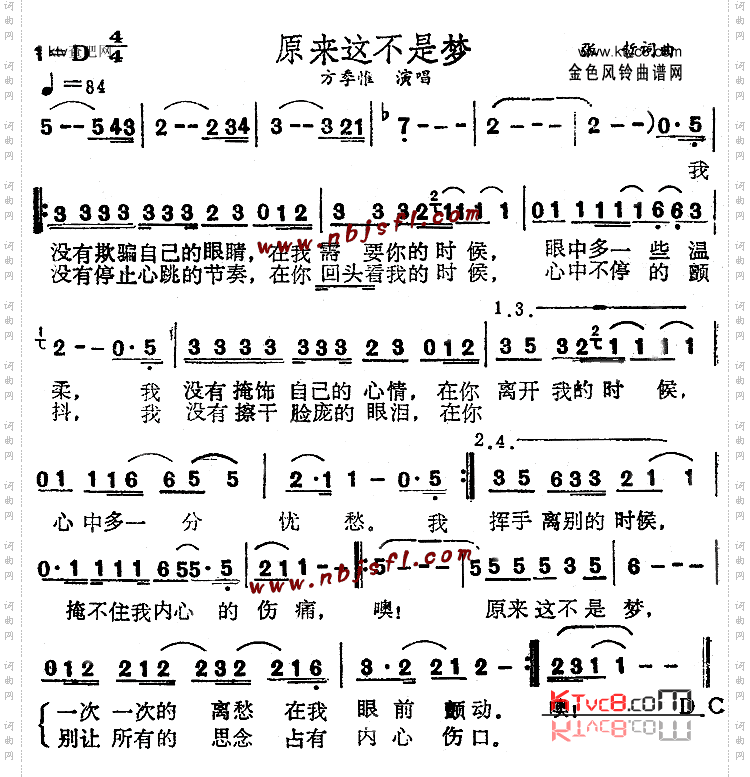 原来这不是梦
方季惟 演唱
词曲
金色风铃曲谱网
1=D 4/4
♩=84
5 - - 543 | 2 - - 234 | 3 - - 321 | ♭7 - - - | 2 - - - | 2 - - ) 0·5
我
3333 333 23 012 | 3 3 32111 1 1 | 01 1111 6·63
没有欺骗自己的眼睛，在我需要你的时候，眼中多一些温
没有停止心跳的节奏，在你回头看我的时候，心中不停的颤
www.nbjsfl.com
1.3.
2 - - 0·5 | 3333 333 23 012 | 35 32111 1
柔，我没有掩饰自己的心情，在你离开我的时候，
抖，我没有擦干脸庞的眼泪，在你
2.4.
01 116 65 5 | 2·1 1 - 0·5 | 35 633 21 1
心中多一分忧愁。我挥手离别的时候，
www.nbjsfl.com
0·1 111 655·5 | 211 - - | 5 - - - | 555 535 | 6 - - -
掩不住我内心的伤痛，噢！原来这不是梦，
012 212 232 216 | 3·2 212 - | 2311 - -
一次一次的离愁在我眼前颤动。噢！ D C
别让所有的思念占有内心伤口。
KTvc8.com
词曲网